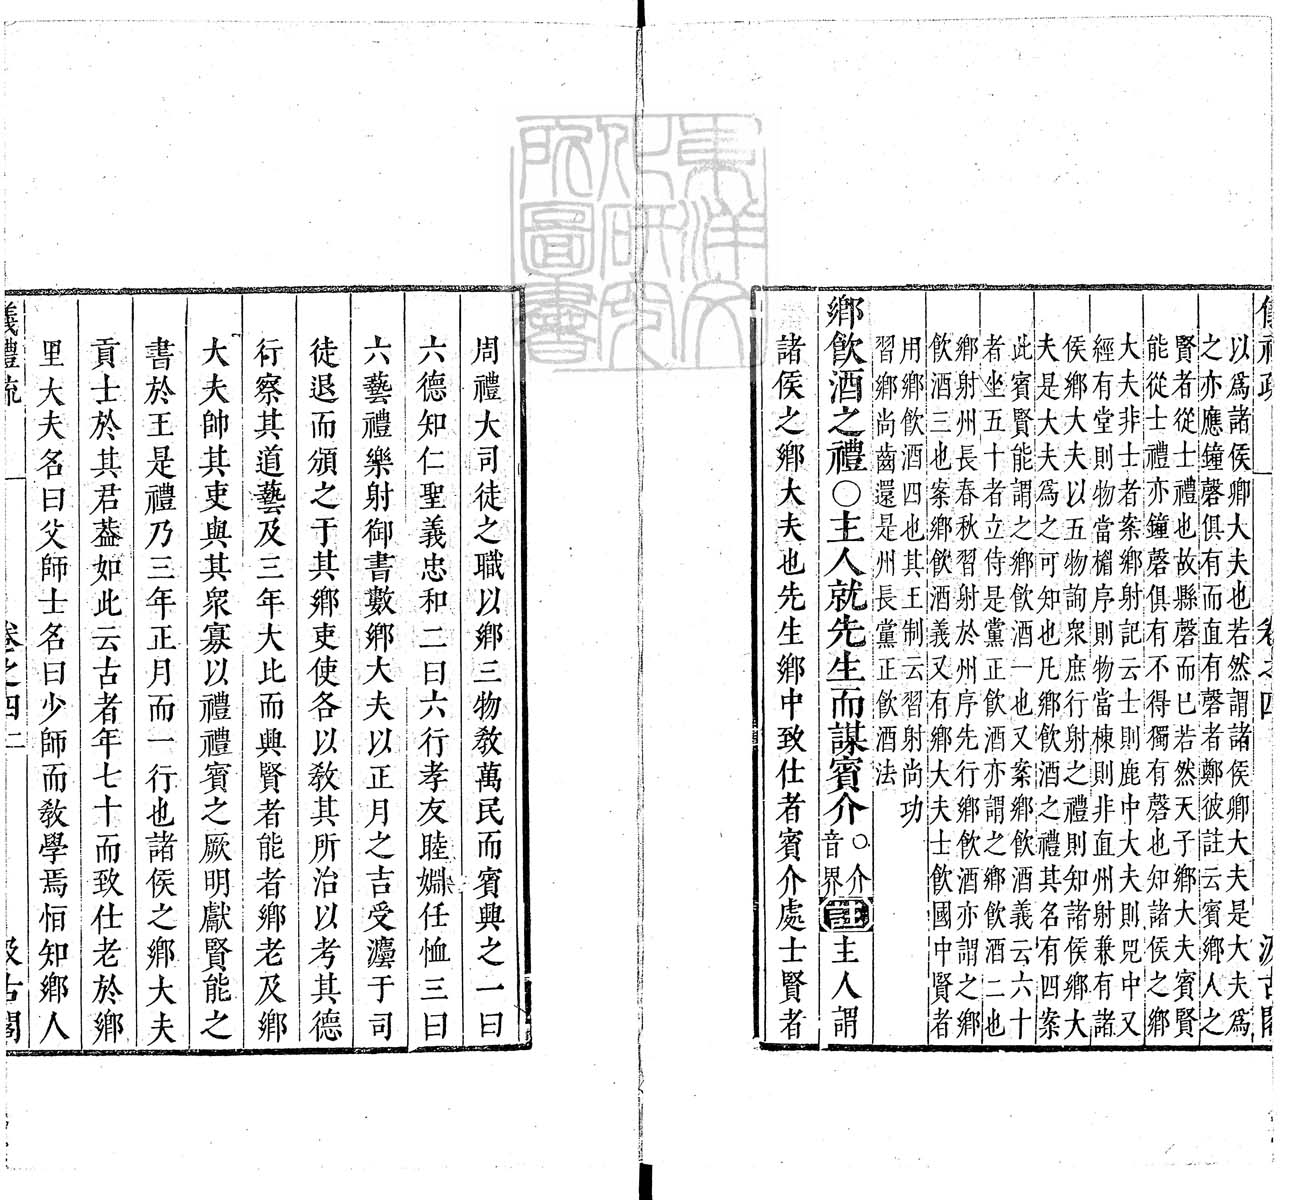 東洋文
化研究
所圖書
儀禮疏 卷之四 汲古閣
以爲諸侯卿大夫也若然謂諸侯卿大夫是大夫爲
之亦應鐘磬俱有而直有磬者鄭彼註云賓鄉人之
賢者從士禮也故縣磬而已若然天子鄉大夫賓賢
能從士禮亦鐘磬俱有不得獨有磬也知諸侯之鄉
大夫非士者案鄉射記云士則鹿中大夫則兕中又
經有堂則物當楣序則物當棟則非直州射兼有諸
侯鄉大夫以五物詢衆庶行射之禮則知諸侯鄉大
夫是大夫爲之可知也凡鄉飲酒之禮其名有四案
此賓賢能謂之鄉飲酒一也又案鄉飲酒義云六十
者坐五十者立侍是黨正飲酒亦謂之鄉飲酒二也
鄉射州長春秋習射於州序先行鄉飲酒亦謂之鄉
飲酒三也案鄉飲酒義又有鄉大夫士飲國中賢者
用鄉飲酒四也其王制云習射尚功
習鄉尚齒還是州長黨正飲酒法
鄉飲酒之禮○主人就先生而謀賓介○介音界註主人謂
諸侯之鄉大夫也先生鄉中致仕者賓介處士賢者
周禮大司徒之職以鄉三物敎萬民而賓興之一曰
六德知仁聖義忠和二曰六行孝友睦婣任恤三曰
六藝禮樂射御書數鄉大夫以正月之吉受灋于司
徒退而頒之于其鄉吏使各以敎其所治以考其德
行察其道藝及三年大比而興賢者能者鄉老及鄉
大夫帥其吏與其衆寡以禮禮賓之厥明獻賢能之
書於王是禮乃三年正月而一行也諸侯之鄉大夫
貢士於其君葢如此云古者年七十而致仕老於鄉
里大夫名曰父師士名曰少師而敎學焉恒知鄉人
儀禮疏 卷之四 二 汲古閣